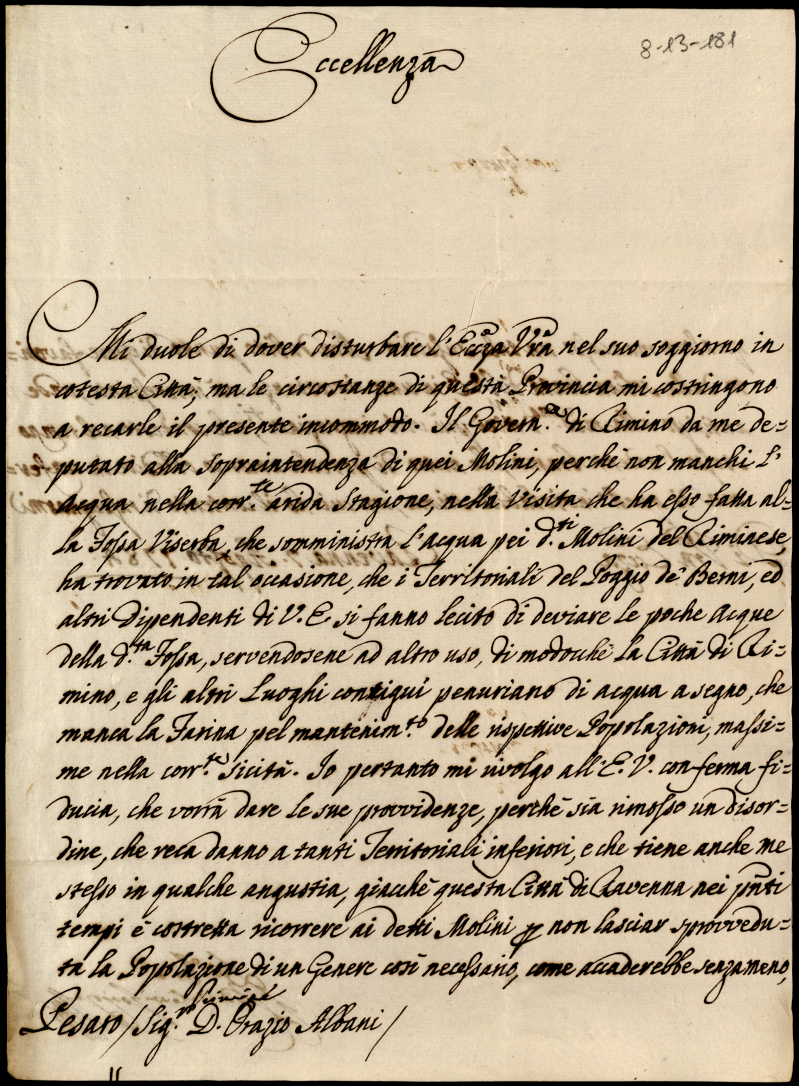 8-13-181
Eccellenza
Mi duole di dover disturbare l'Ecc̃za Vr̃a nel suo soggiorno in
cotesta Città, ma le circostanze di questa Provincia mi costringono
a recarle il presente incommodo. Il Govern.re di Rimino da me de=
putato alla sopraintendenza di quei Molini, perchè non manchi l'
Acqua nella corr.te arida Stagione, nella Visita che ha esso fatta al=
la Fossa Viserba, che somministra l'acqua pei d.ti Molini del Riminese,
ha trovato in tal occasione, che i Territoriali del Poggio de' Berni, ed
altri dipendenti di V. E. si fanno lecito di deviare le poche Acque
della d.ta Fossa, servendosene ad altro uso, di modochè la Città di Ri=
mino, e gli altri Luoghi contigui penuriano di acqua a segno, che
manca la Farina pel mantenim.to delle rispettive Popolazioni, massi=
me nella corr.te sicità. Io pertanto mi rivolgo all'E. V. con ferma fi=
ducia, che vorrà dare le sue provvidenze, perchè sia rimosso un disor=
dine, che reca danno a tanti Territoriali inferiori, e che tiene anche me
stesso in qualche angustia, giacchè questa Città di Ravenna nei pñti
tempi è costretta ricorrere ai detti Molini p non lasciar sprovvedu=
ta la Popolazione di un Genere così necessario, come accaderebbe senzameno,
Pesaro /Sig.r Principe D. Orazio Albani/